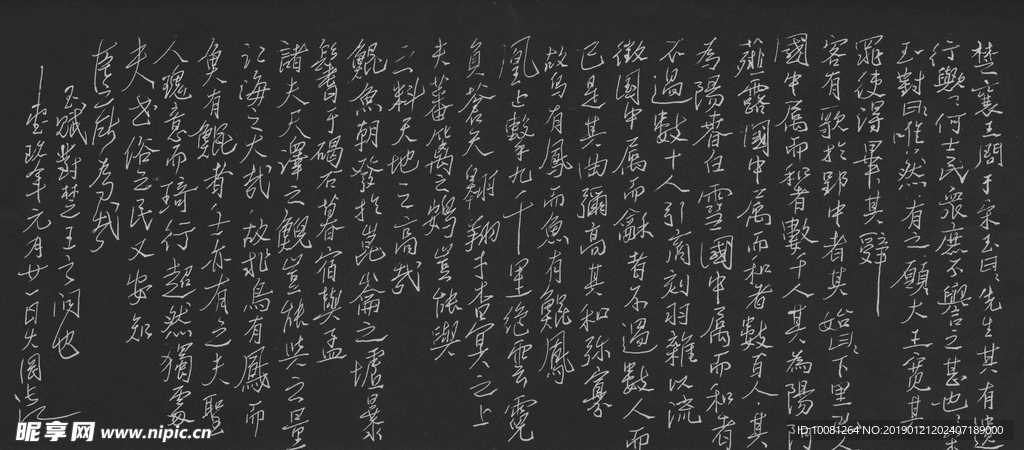 楚襄王問于宋玉曰先生其有遺
行與何士民眾庶不譽之甚也宋
玉對曰唯然有之願大王寬其
罪使得畢其辭
客有歌於郢中者其始曰下里巴人
國中屬而和者數千人其為陽阿
薤露國中屬而和者數百人其
為陽春白雪國中屬而和者
不過數十人引商刻羽雜以流
徵國中屬而龢者不過數人而
已是其曲彌高其和弥寡
故鸟有鳳而魚有鯤鳳
凰上擊九千里絕雲霓
負蒼天翱翔乎杳冥之上
夫蕃籬之鷃豈能與
之料天地之高哉
鯤魚朝發於崑崙之墟暴
鬐于碣石暮宿與孟
諸夫尺澤之鯢豈能與之量
江海之大哉故非鳥有鳳而
魚有鯤者士亦有之夫聖
人瑰意而琦行超然獨處
夫世俗之民又安知
臣所為哉
玉賦對楚王之问也
元月廿一日
昵享网 www.nipic.cn
ID:10081264 NO:20190121202407189000